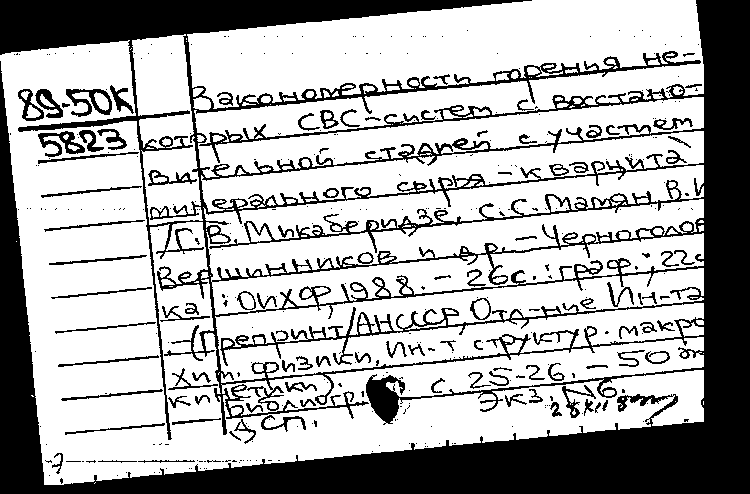 89-50К
5823
Закономерности горения не-
которых СВС-систем с восстано-
вительной стадией с участием
минерального сырья - кварцита
/Г.В. Микаберидзе, С.С. Мамян, В.И
Вершинников и др. - Черноголов
ка : ОИХФ, 1988. - 26с. : граф.; 22с
. - (Препринт/АНСССР, Отд-ние Ин-та
хим. физики, Ин-т структур. макро
кинетики).
Библиогр.: с. 25-26. - 50 эк
ДСП. Экз. №6.